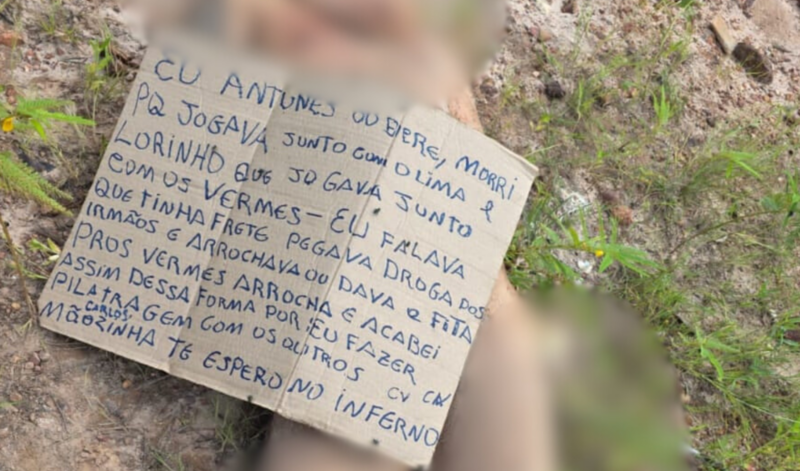 EU ANTUNES OU BERE, MORRI
PQ JOGAVA JUNTO COM O LIMA E
LORINHO QUE JOGAVA JUNTO
COM OS VERMES - EU FALAVA
QUE TINHA FRETE PEGAVA DROGA DOS
IRMÃOS E ARROCHAVA OU DAVA A FITA
PROS VERMES ARROCHA E ACABEI
ASSIM DESSA FORMA POR EU FAZER
PILATRAGEM COM OS OUTROS CV
CARLOS
MÃOZINHA TE ESPERO NO INFERNO